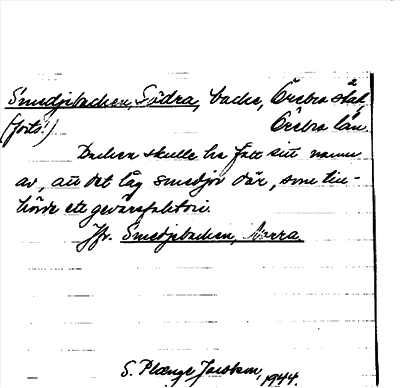 Smedjebacken, Södra, backe, Örebro stad,
(forts.) Örebro län.
Backen skulle ha fått sitt namn
av, att det låg smedjor där, som till-
hörde ett gevärsfaktori.
Jfr. Smedjebacken, Norra.
S. Plænge Jacobson, 1944.